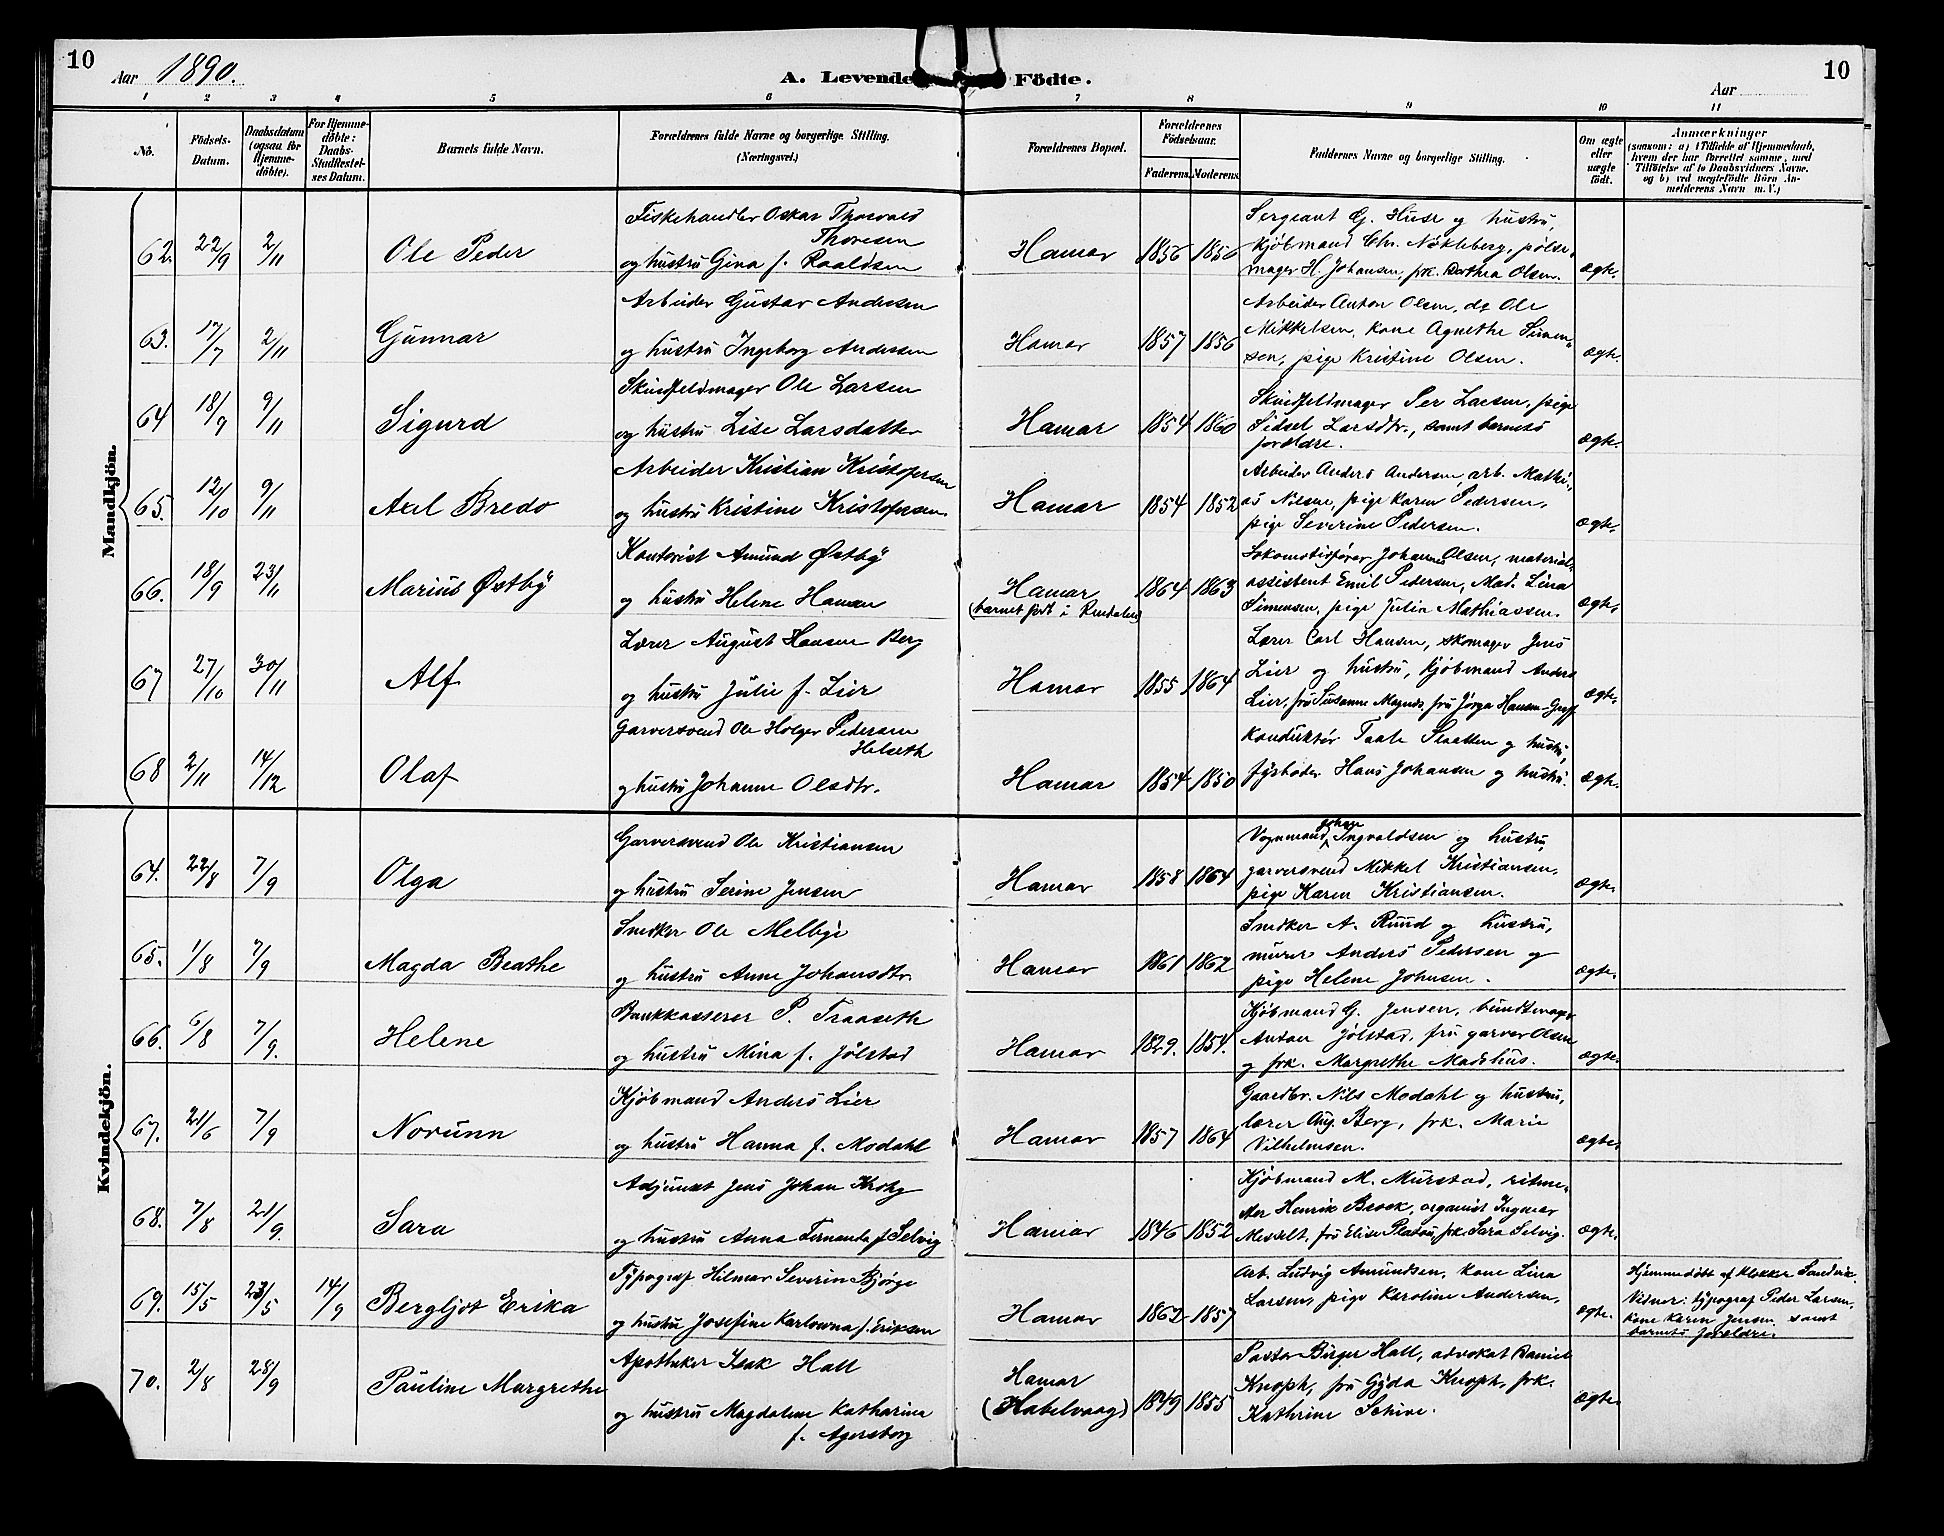 10
Aar 1890.
A. Levende Födte.
Aar
10
1 2 3 4 5 6 7 8 9 10 11
No.
Födsels-Datum.
Daabsdatum (ogsaa for Hjemme-döbte).
For Hjemme-döbte: Daabs-Stadfæstel-ses Datum.
Barnets fulde Navn.
Forældrenes fulde Navne og borgerlige Stilling. (Næringsvei.)
Forældrenes Bopæl.
Forældrenes Födselsaar.
Faderens. Moderens.
Faddernes Navne og borgerlige Stilling.
Om ægte eller uægte födt.
Anmærkninger
(saasom: a) i Tilfælde af Hjemmedaab,
hvem der har forrettet samme, med
Tilföielse af to Daabsvidners Navne.
og b) ved uægtefödte Börn An-
melderens Navn m. V.)
Mandkjön.
62. 22/9 2/11 Ole Peder
Fiskehandler Oskar Thorvald
Thoresen
og hustru Gina f. Roaldsen
Hamar 1856 1856
Sergeant G. Huse og hustru,
kjöbmand Chr. Nökleberg, pölse-
mager H. Johansen, frk. Berthea Olsen. ægte.
63. 17/7 2/11 Gunnar
Arbeider Gustav Andersen
og hustru Ingeborg Andersen
Hamar 1857 1856
Arbeider Anton Olsen, do Ole
Mikkelsen, kone Agnethe Simen-
sen, pige Kristine Olsen. ægte.
64 18/9 9/11 Sigurd
Skindfeldmager Ole Larsen
og hustru Lise Larsdatter
Hamar 1854 1860
Skindfeldmager Per Larsen, pige
Sidsel Larsdtr., samt barnets
forældre. ægte.
65. 12/10 9/11 Axel Bredo
Arbeider Kristian Kristofersen
og hustru Kristine Kristofersen.
Hamar 1854 1852
Arbeider Anders Andersen, arb. Mathi-
as Nilsen, pige Karen Pedersen,
pige Severine Pedersen. ægte.
66. 18/9 23/11 Marius Østby
Kontorist Amund Østby
og hustru Helene Hansen
Hamar
(barnet født i Rendalen)
1864 1863
Lokomotivfører Johannes Olsen, material-
assistent Emil Pedersen, Mad. Lina
Simensen, pige Julia Mathiassen. ægte.
67 27/10 30/11 Alf
Lærer August Hansen Berg
og hustru Julie f. Lier
Hamar 1855 1864
Lærer Carl Hansen, skomager Jens
Lier og hustru, kjöbmand Anders
Lier, fru Susanne Magnus, fru Jørga Hansen ægte.
68 2/11 14/12 Olaf
Garversvend Ole Holger Pedersen
Helseth
og hustru Johanne Olsdtr.
Hamar 1854 1850
Konduktör Slaatten og hustru,
fyrböder Hans Johansen og hustru. ægte.
Kvindekjön.
64. 22/8 7/9 Olga
Garversvend Ole Kristiansen
og hustru Serine Jensen
Hamar 1858 1864
Vognmand Johan Ingvaldsen og hustru
garversvend Mikkel Kristiansen,
pige Karen Kristiansen. ægte.
65. 1/8 7/9 Magda Beathe
Snedker Ole Melbye
og hustru Anne Johansdtr.
Hamar 1861 1862
Snedker A. Ruud og hustru,
murer Anders Pedersen og
pige Helene Johnsen. ægte.
66. 6/8 7/9. Helene
Bankkasserer P. Traaseth
og hustru Mina f. Jölstad
Hamar 1829. 1854.
Kjöbmand G. Jensen, bundtmager
Anton Jölstad, fru garver Olsen
og frk. Margrethe Madshus. ægte.
67. 21/6 7/9 Norunn
Kjöbmand Anders Lier
og hustru Hanna f. Modahl
Hamar 1857 1864
Gaardbr. Nils Modahl og hustru,
lærer Aug. Berg, frk. Marie
Vilhelmsen. ægte.
68. 7/8 21/9. Sara
Adjunct Jens Johan Krohg
og hustru Anna Fernanda f. Selvig
Hamar 1846 1852
Kjöbmand M. Murstad, ritme-
ster Henrik Brock, organist Ingvar
Messelt, fru Elise Platou, frk. Sara Selvig. ægte.
69. 15/5 23/5 14/9 Bergljot Erika
Typograf Hilmar Severin Björge
og hustru Josefine Karlowna f. Eriksen
Hamar 1862 1857
Arb. Ludvig Amundsen, kone Lina
Larsen, pige Karoline Andersen, ægte.
Hjemmedöbt af klokker Sandvik.
Vidner: typograf Peder Larsen,
kone Karen Jensen, samt
barnets forældre.
70. 2/8 28/9 Pauline Margrethe
Apotheker Isak Hall
og hustru Magdalene Katharina
f. Agersborg
Hamar
(Kabelvaag)
1849 1855
Pastor Birger Hall, advokat Daniel
Knoph, fru Gyda Knoph, frk.
Kathrine Schive. ægte.